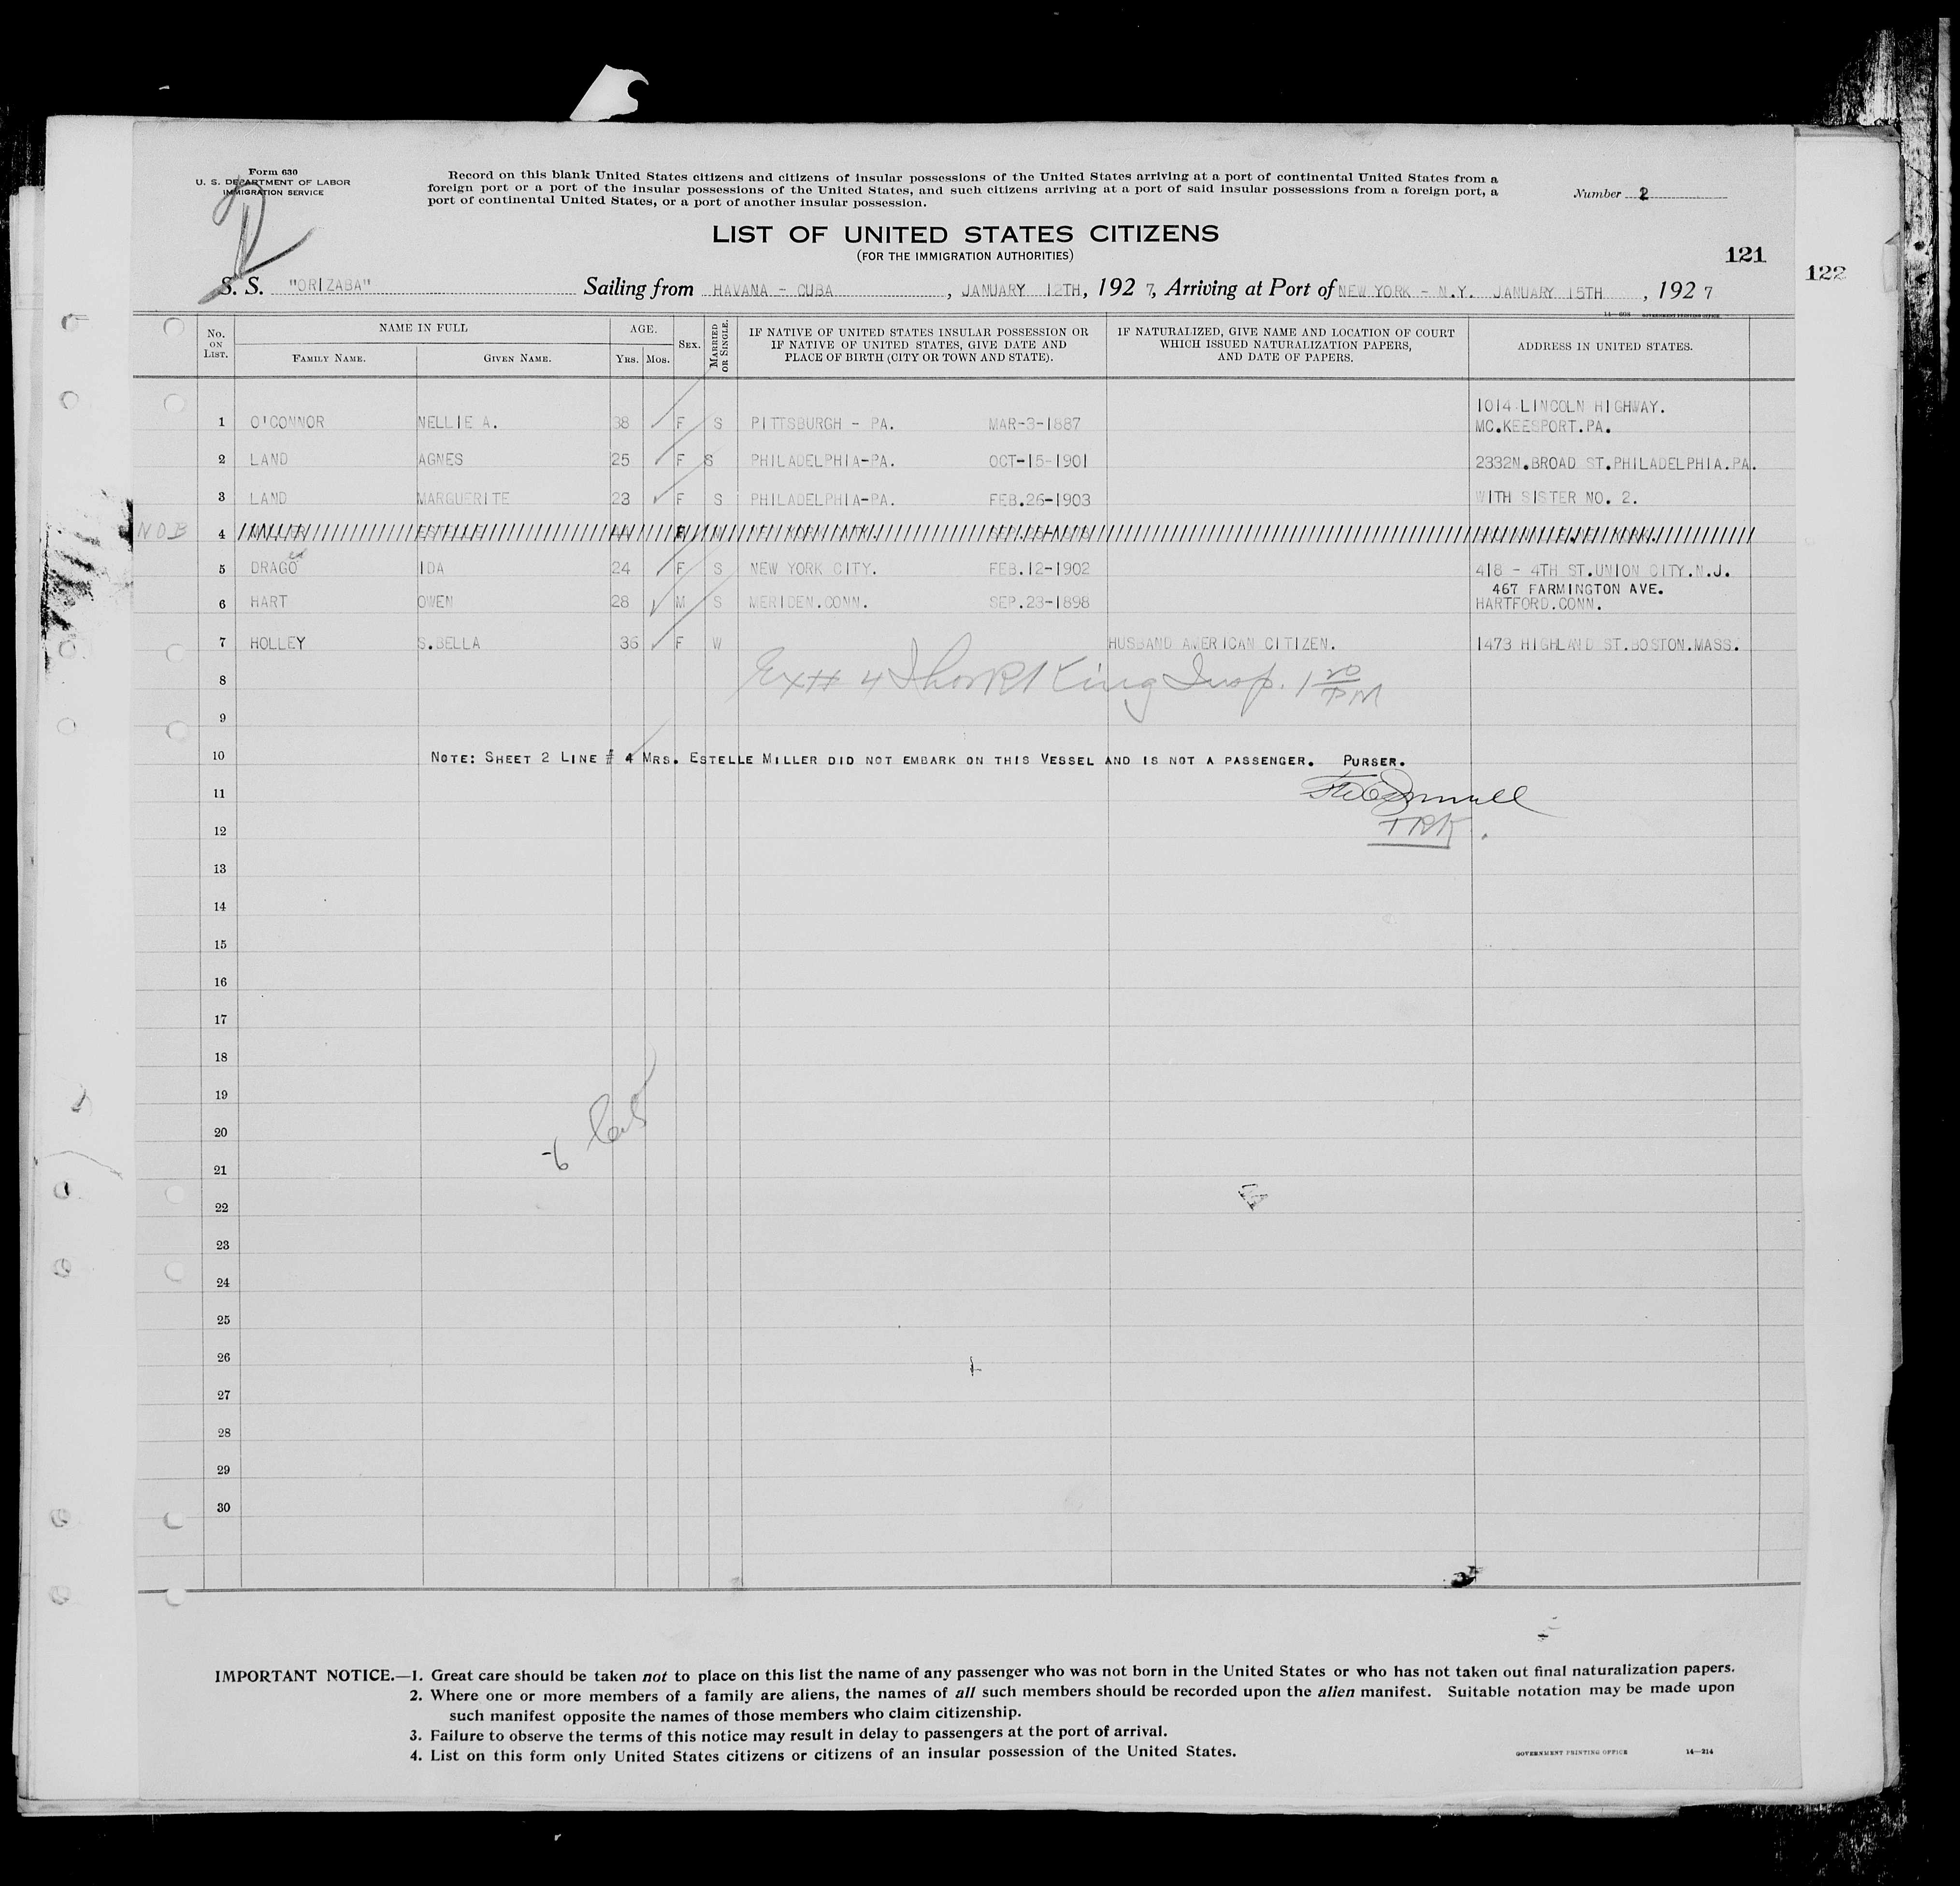 Form 630
U. S. DEPARTMENT OF LABOR
IMMIGRATION SERVICE
Record on this blank United States citizens and citizens of insular possessions of the United States arriving at a port of continental United States from a
foreign port or a port of the insular possessions of the United States, and such citizens arriving at a port of said insular possessions from a foreign port, a
port of continental United States, or a port of another insular possession.
Number 2
LIST OF UNITED STATES CITIZENS
(FOR THE IMMIGRATION AUTHORITIES)
121
122
S. S. "ORIZABA" Sailing from HAVANA - CUBA, JANUARY 12TH, 1927, Arriving at Port of NEW YORK - N.Y. JANUARY 15TH, 1927
No. ON LIST. NAME IN FULL FAMILY NAME. GIVEN NAME. AGE. YRS. MOS. SEX. MARRIED OR SINGLE. IF NATIVE OF UNITED STATES INSULAR POSSESSION OR IF NATIVE OF UNITED STATES, GIVE DATE AND PLACE OF BIRTH (CITY OR TOWN AND STATE). IF NATURALIZED, GIVE NAME AND LOCATION OF COURT WHICH ISSUED NATURALIZATION PAPERS, AND DATE OF PAPERS. ADDRESS IN UNITED STATES.
1014 LINCOLN HIGHWAY.
1 O'CONNOR NELLIE A. 38 F S PITTSBURGH - PA. MAR-3-1887 MC.KEESPORT.PA.
2 LAND AGNES 25 F S PHILADELPHIA-PA. OCT-15-1901 2332N.BROAD ST.PHILADELPHIA.PA.
3 LAND MARGUERITE 23 F S PHILADELPHIA-PA. FEB.26-1903 WITH SISTER NO. 2.
NOB 4 MILLER ESTELLE
5 DRAGO IDA 24 F S NEW YORK CITY. FEB.12-1902 418 - 4TH ST.UNION CITY.N.J.
467 FARMINGTON AVE.
6 HART OWEN 28 M S MERIDEN.CONN. SEP.23-1898 HARTFORD.CONN.
7 HOLLEY S.BELLA 36 F W HUSBAND AMERICAN CITIZEN. 1473 HIGHLAND ST.BOSTON.MASS.
8 King Insp. 1 20 PM
9
10 NOTE: SHEET 2 LINE # 4 MRS. ESTELLE MILLER DID NOT EMBARK ON THIS VESSEL AND IS NOT A PASSENGER. PURSER.
11
12 TRK.
13
14
15
16
17
18
19
20
21
22
23
24
25
26
27
28
29
30
IMPORTANT NOTICE.—1. Great care should be taken not to place on this list the name of any passenger who was not born in the United States or who has not taken out final naturalization papers.
2. Where one or more members of a family are aliens, the names of all such members should be recorded upon the alien manifest. Suitable notation may be made upon
such manifest opposite the names of those members who claim citizenship.
3. Failure to observe the terms of this notice may result in delay to passengers at the port of arrival.
4. List on this form only United States citizens or citizens of an insular possession of the United States.
GOVERNMENT PRINTING OFFICE 14—214